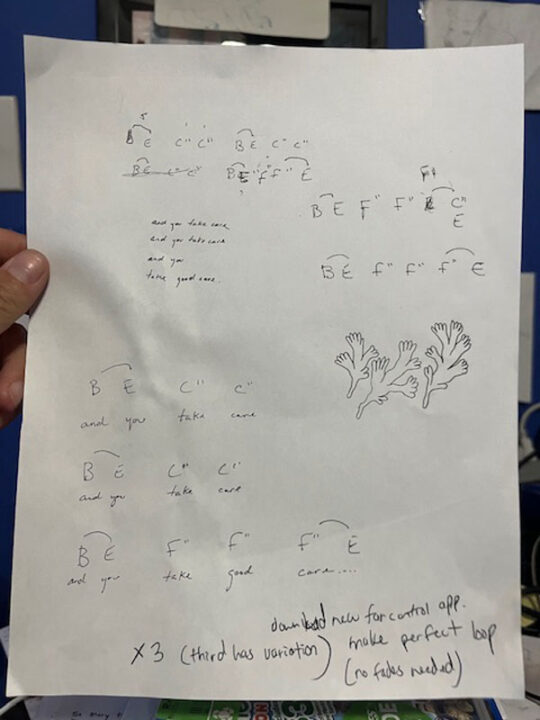 B E C" C" B E C" C"
B E C" C" B E F" F" E
and you take care
and you take care
and you
take good care.
F#
B E F" F" C"
E
B E F" F" F" E
B E C" C"
and you take care
B E C" C"
and you take care
B E F" F" F" E
and you take good care....
download new far control app.
x3 (third has variation) make perfect loop
(no fades needed)